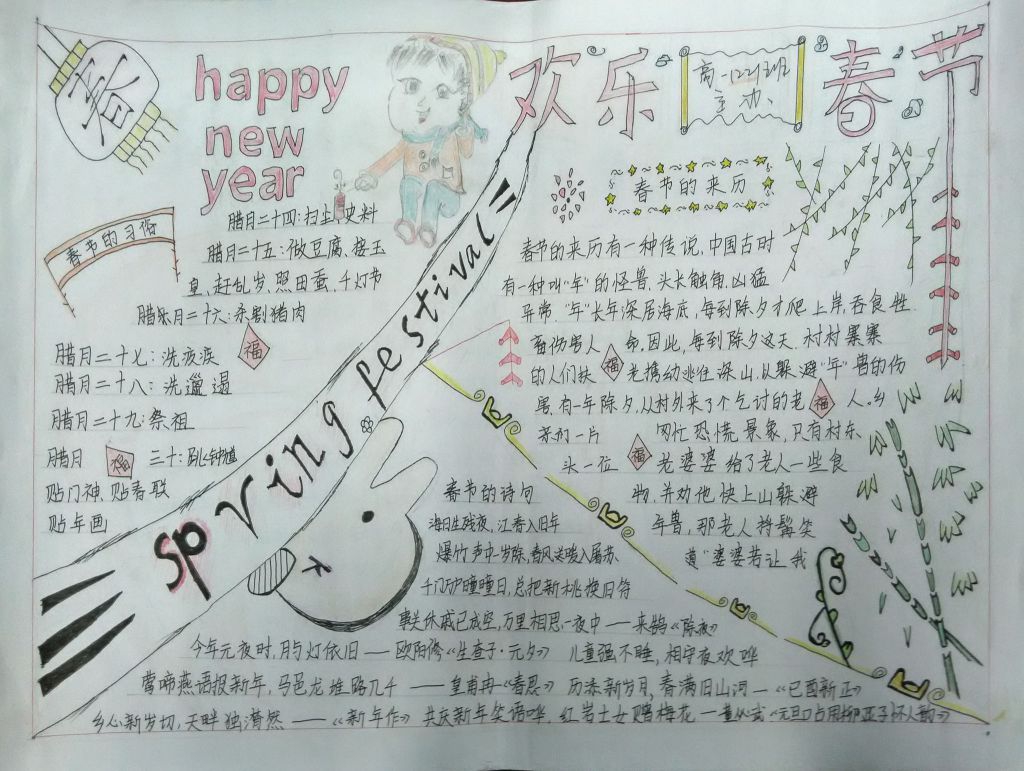 春
happy
new
year
欢乐
高一(22)班
主办
春节
春节的习俗
腊月二十四:扫尘、史料
腊月二十五:做豆腐、接玉
皇、赶乱岁、照田蚕、千灯节
腊月二十六:杀割猪肉
福
腊月二十七:洗疚
腊月二十八:洗邋遢
腊月二十九:祭祖
腊月 福 三十:
贴门神、贴春联
贴年画
spring festival"
春节的来历
春节的来历有一种传说,中国古时
有一种叫"年"的怪兽,头长触角,凶猛
异常."年"长年深居海底,每到除夕才爬上岸,吞食牲
畜伤害人 命.因此,每到除夕这天,村村寨寨
的人们扶 福 老携幼逃往深山,以躲避"年"兽的伤
害.有一年除夕,从村外来了个乞讨的老 福 人。乡
亲们一片 匆忙恐慌景象,只有村东
头一位 福 老婆婆给了老人一些食
物,并劝他快上山躲避
年兽,那老人捋髯笑
道"婆婆若让我
春节的诗句
海日生残夜,江春入旧年
爆竹声中一岁除,春风送暖入屠苏
千门万户曈曈日,总把新桃换旧符
事关休戚已成空,万里相思一夜中——来鹄《除夜》
今年元夜时,月与灯依旧——欧阳修《生查子·元夕》 儿童强不睡,相守夜欢哗
莺啼燕语报新年,马邑龙堆路几千——皇甫冉《春思》 历添新岁月,春满旧山河—《己酉新正》
乡心新岁切,天畔独潸然——《新年作》 共庆新年笑语哗,红岩士女赠梅花—董必武《元旦口占用柳亚子怀人韵》